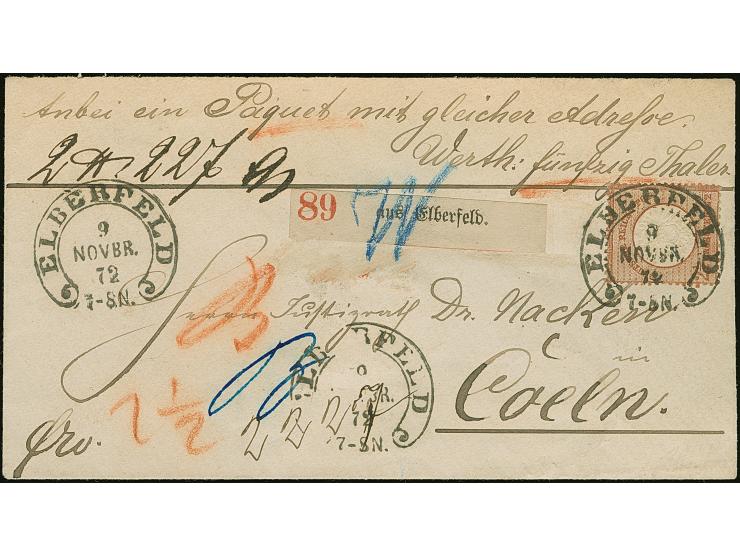 Anbei ein Paquet mit gleicher Adresse.
Werth: fünfzig Thaler
2 ℔ 227
89 aus Elberfeld.
W
ELBERFELD
9
NOVBR.
72
7-8N.
ELBERFELD
9
NOVBR.
72
7-8N.
Herrn Justizrath Dr. Nacken
in
Coeln.
ELBERFELD
9
BR.
72
7-8N.
2 ½
222
frv.